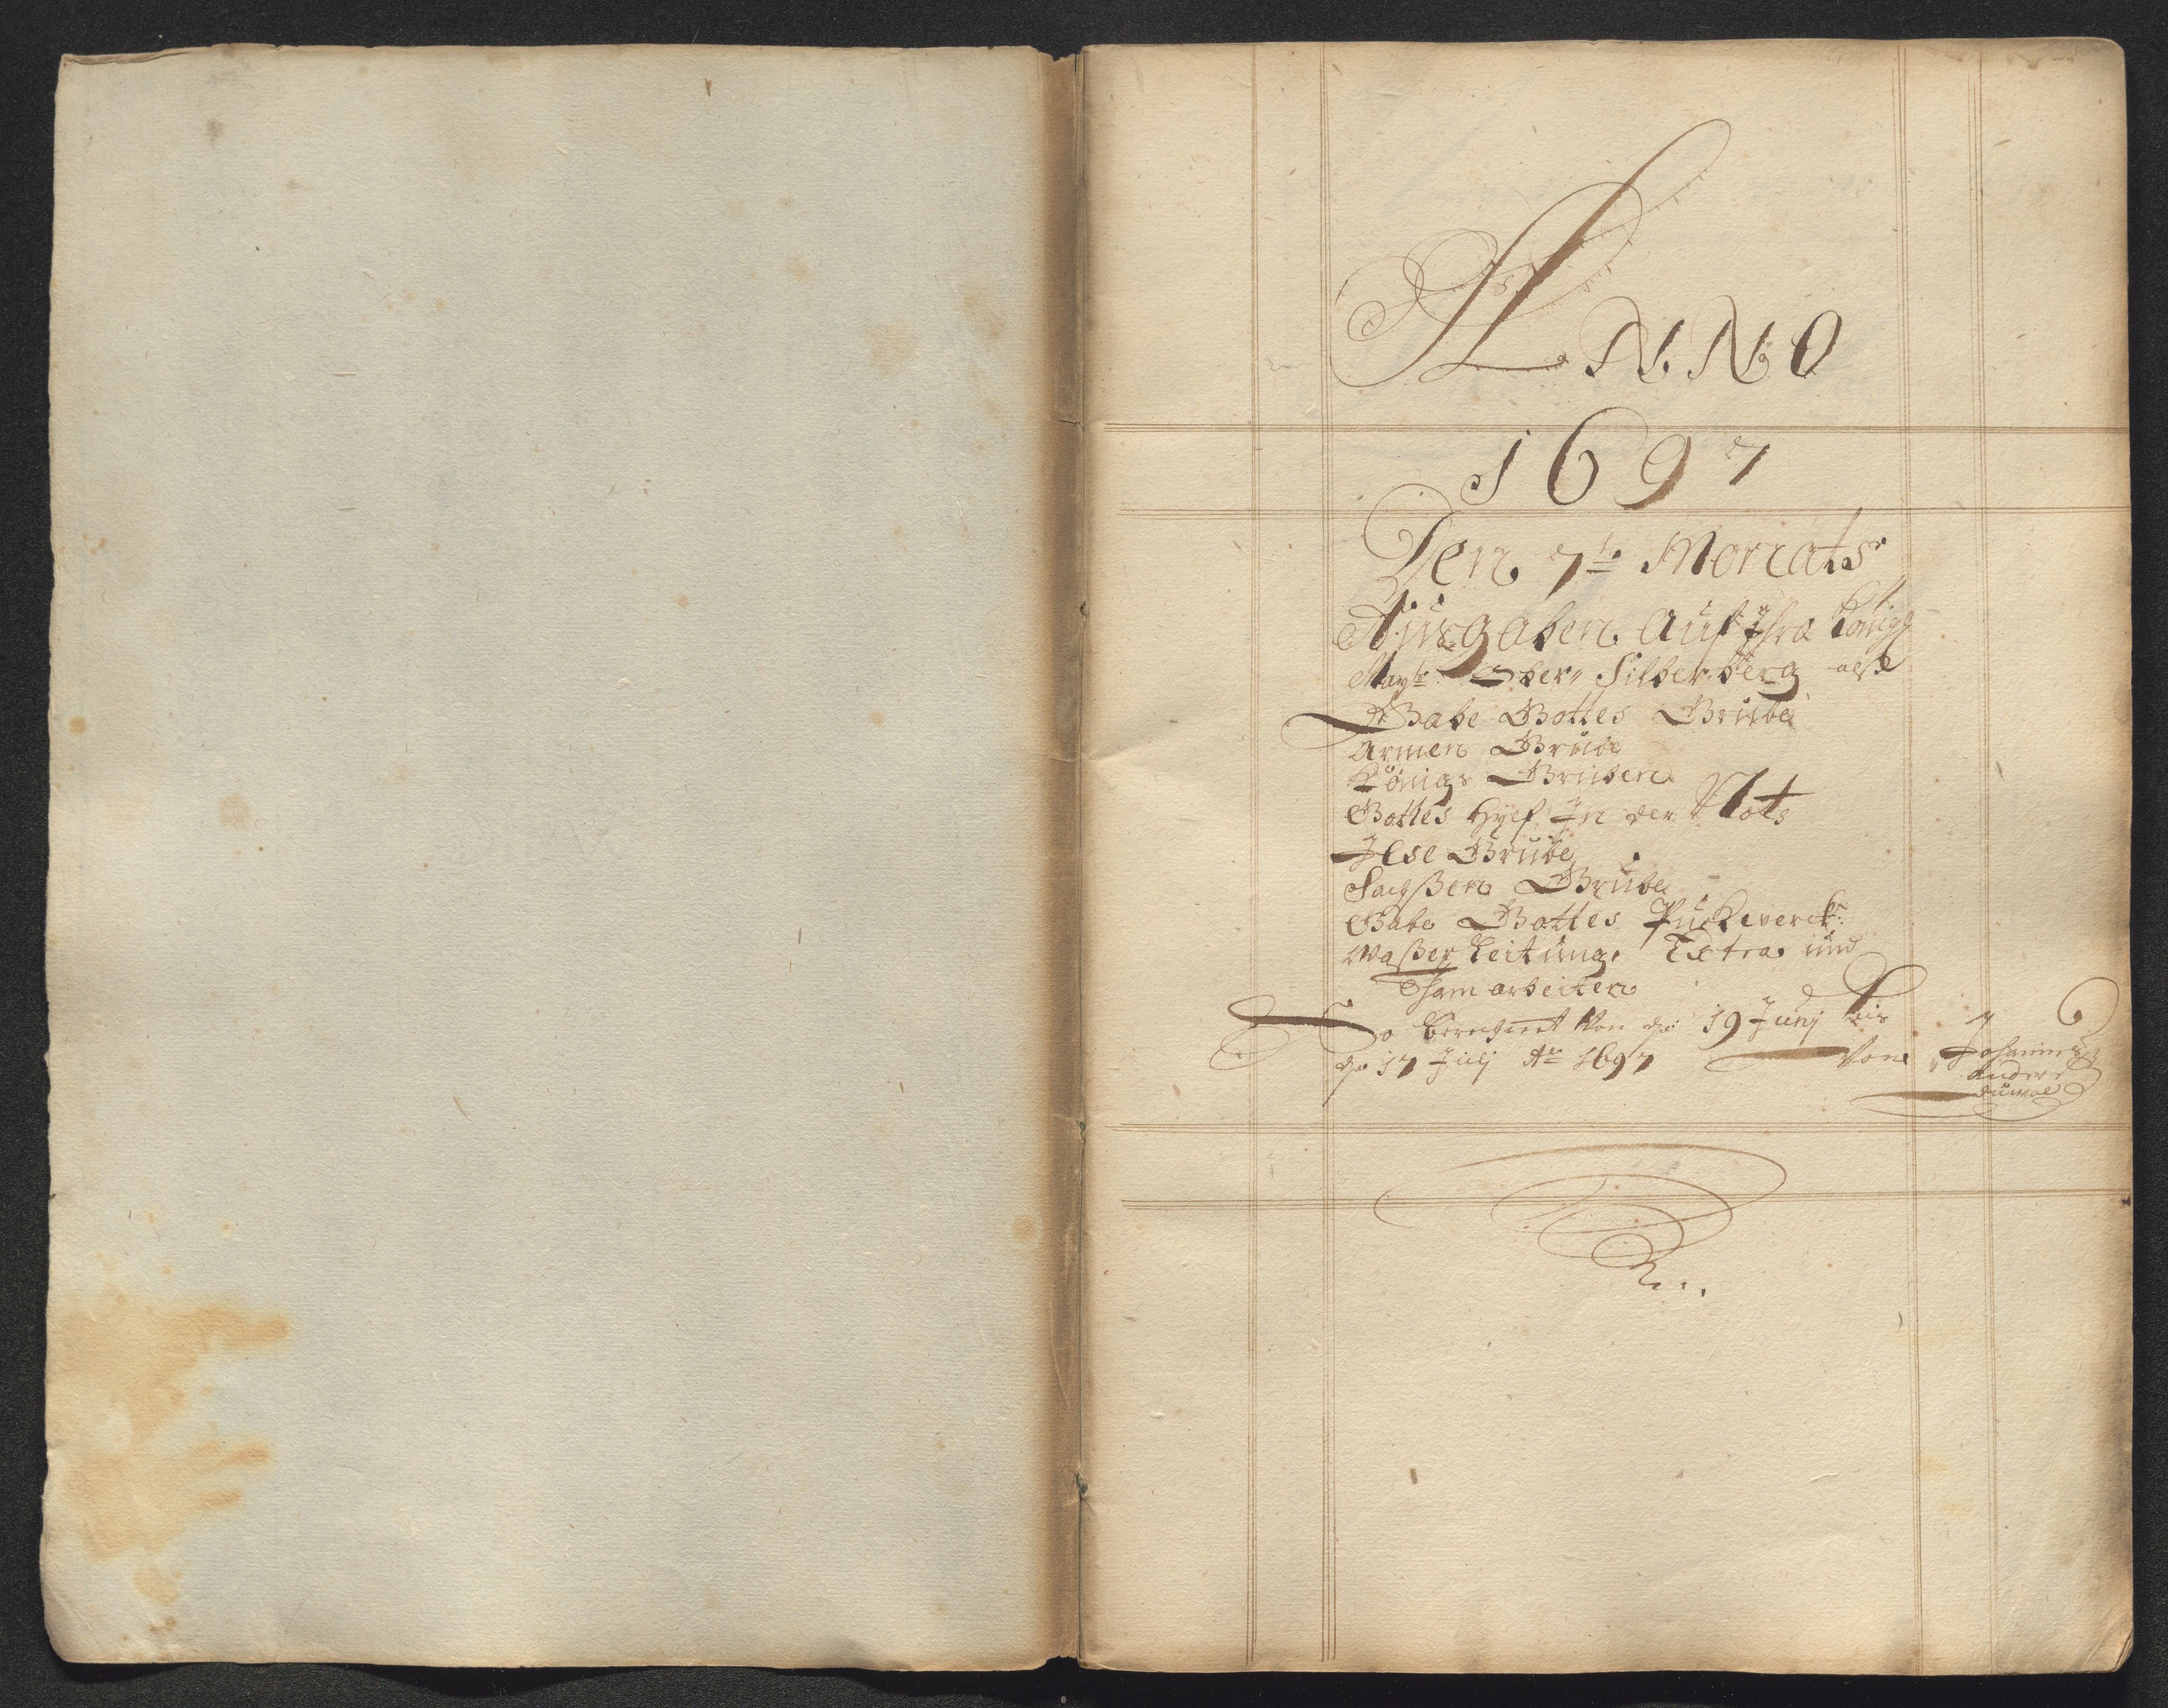 ANNO
1697
Den 7te Monats
Ausgaben Auf Ihro König
Maytt Ober Silberberg als
Gabe Gottes Grube
Armen Grube
Königs Gruben
Gottes Hylf In der Noth
Ilse Grube
Sachßen Grube
Gabe Gottes Puckwerck
Waßer Leitung, Extra und
Tham arbeiten
So berechnet Von do 19 Junij bis
do 17 Julij Ao 1697 Von Johann